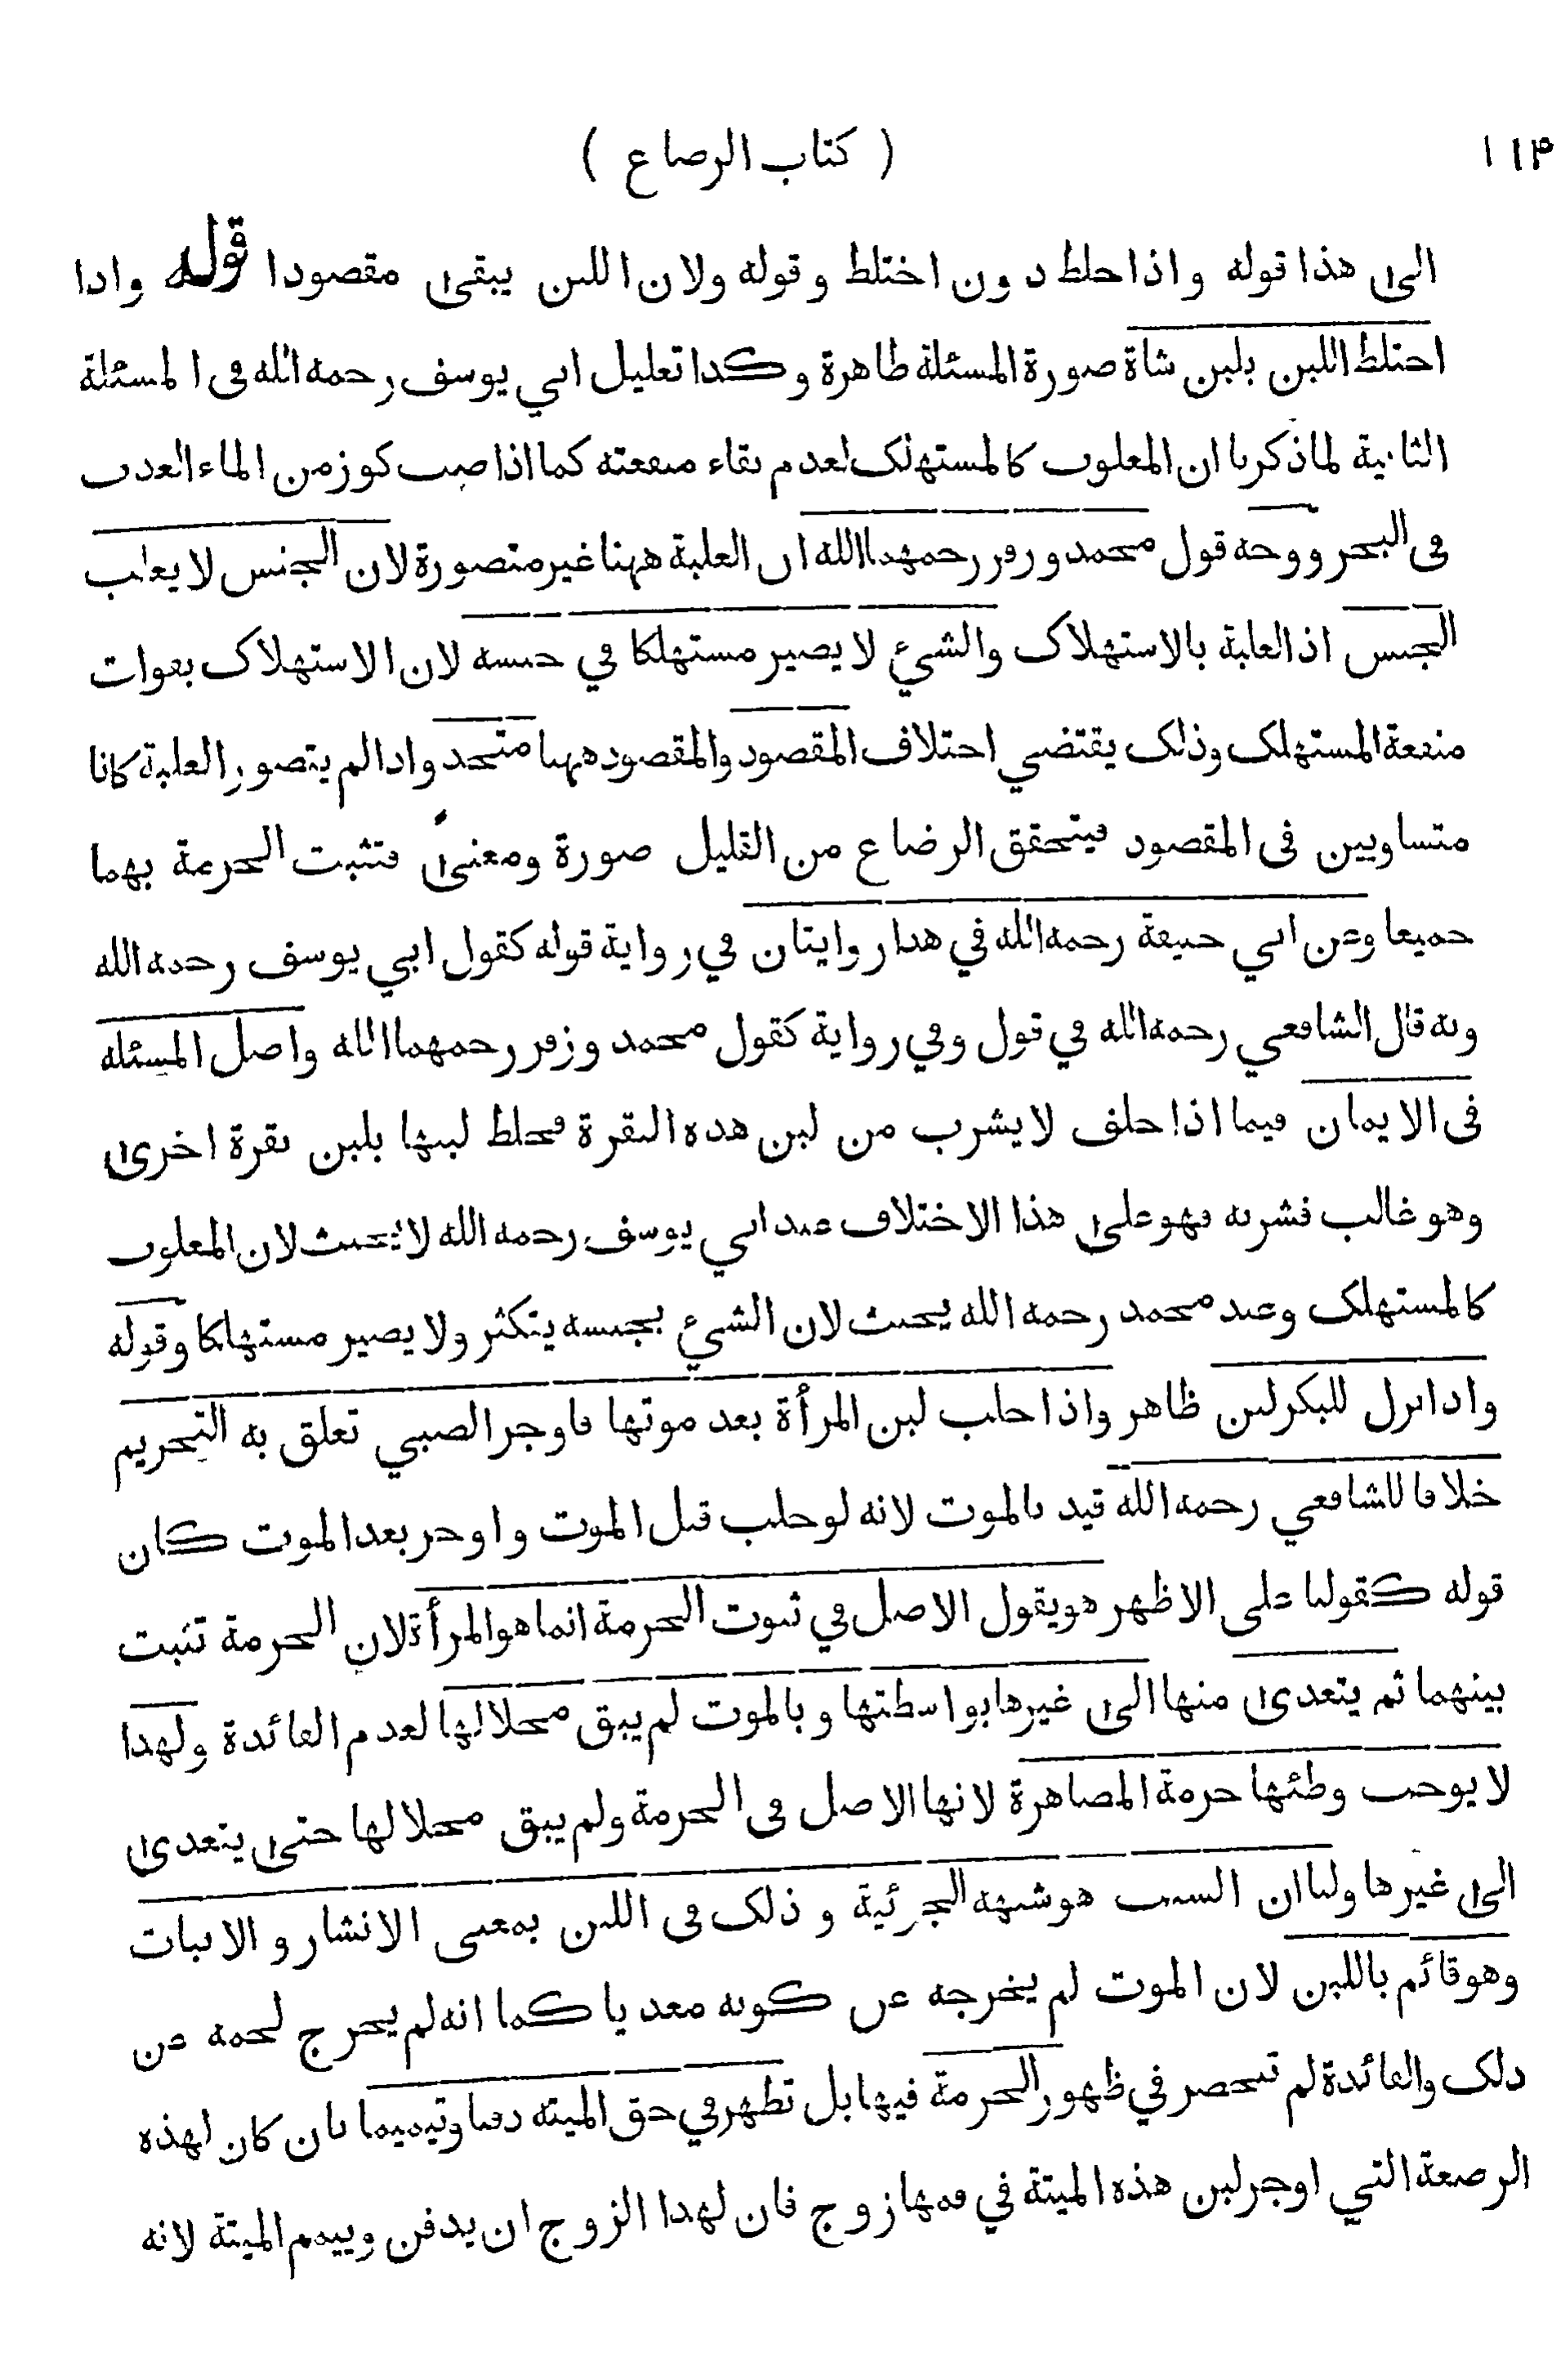 ١١٣
( كتاب الرضاع )
الى هذا قوله واذا خلط دون اختلط وقوله ولان اللبن يبقى مقصودا قوله واذا
اختلط اللبن بلبن شاة صورة المسئلة ظاهرة وكذا تعليل ابي يوسف رحمه الله فى المسئلة
الثانية لما ذكرنا ان المغلوب كالمستهلك لعدم بقاء منفعته كما اذا صب كوز من الماء العذب
فى البحر ووجه قول محمد وزفر رحمهما الله ان الغلبة ههنا غير متصورة لان الجنس لا يغلب
الجنس اذ الغلبة بالاستهلاك والشيء لا يصير مستهلكا في جنسه لان الاستهلاك بفوات
منفعة المستهلك وذلك يقتضي اختلاف المقصود والمقصود ههنا متحد واذا لم يتصور الغلبة كانا
متساويين فى المقصود فيتحقق الرضاع من القليل صورة ومعنى فتثبت الحرمة بهما
جميعا وعن ابي حنيفة رحمه الله في هذا روايتان في رواية قوله كقول ابي يوسف رحمه الله
وبه قال الشافعي رحمه الله في قول وفي رواية كقول محمد وزفر رحمهما الله واصل المسئلة
فى الايمان فيما اذا حلف لا يشرب من لبن هذه البقرة فخلط لبنها بلبن بقرة اخرى
وهو غالب فشربه فهو على هذا الاختلاف عند ابي يوسف رحمه الله لا يحنث لان المغلوب
كالمستهلك وعند محمد رحمه الله يحنث لان الشيء بجنسه يتكثر ولا يصير مستهلكا وقوله
واذا نزل للبكر لبن ظاهر واذا حلب لبن المرأة بعد موتها فاوجر الصبي تعلق به التحريم
خلافا للشافعي رحمه الله قيد بالموت لانه لو حلب قبل الموت واوجر بعد الموت كان
قوله كقولنا على الاظهر هو يقول الاصل في ثبوت الحرمة انما هو المرأة لان الحرمة تثبت
بينهما ثم يتعدى منها الى غيرها بواسطتها وبالموت لم يبق محلا لها لعدم الفائدة ولهذا
لا يوجب وطئها حرمة المصاهرة لانها الاصل فى الحرمة ولم يبق محلا لها حتى يتعدى
الى غيرها ولنا ان السبب هو شبهه الجزئية وذلك فى اللبن بمعنى الانشار والانبات
وهو قائم باللبن لان الموت لم يخرجه عن كونه مغذيا كما انه لم يخرج لحمه عن
ذلك والفائدة لم تنحصر في ظهور الحرمة فيها بل تظهر في حق الميتة دفنا وتيميما بان كان لهذه
الرضعة التي اوجر لبن هذه الميتة في فمها زوج فان لهذا الزوج ان يدفن وييمم الميتة لانه